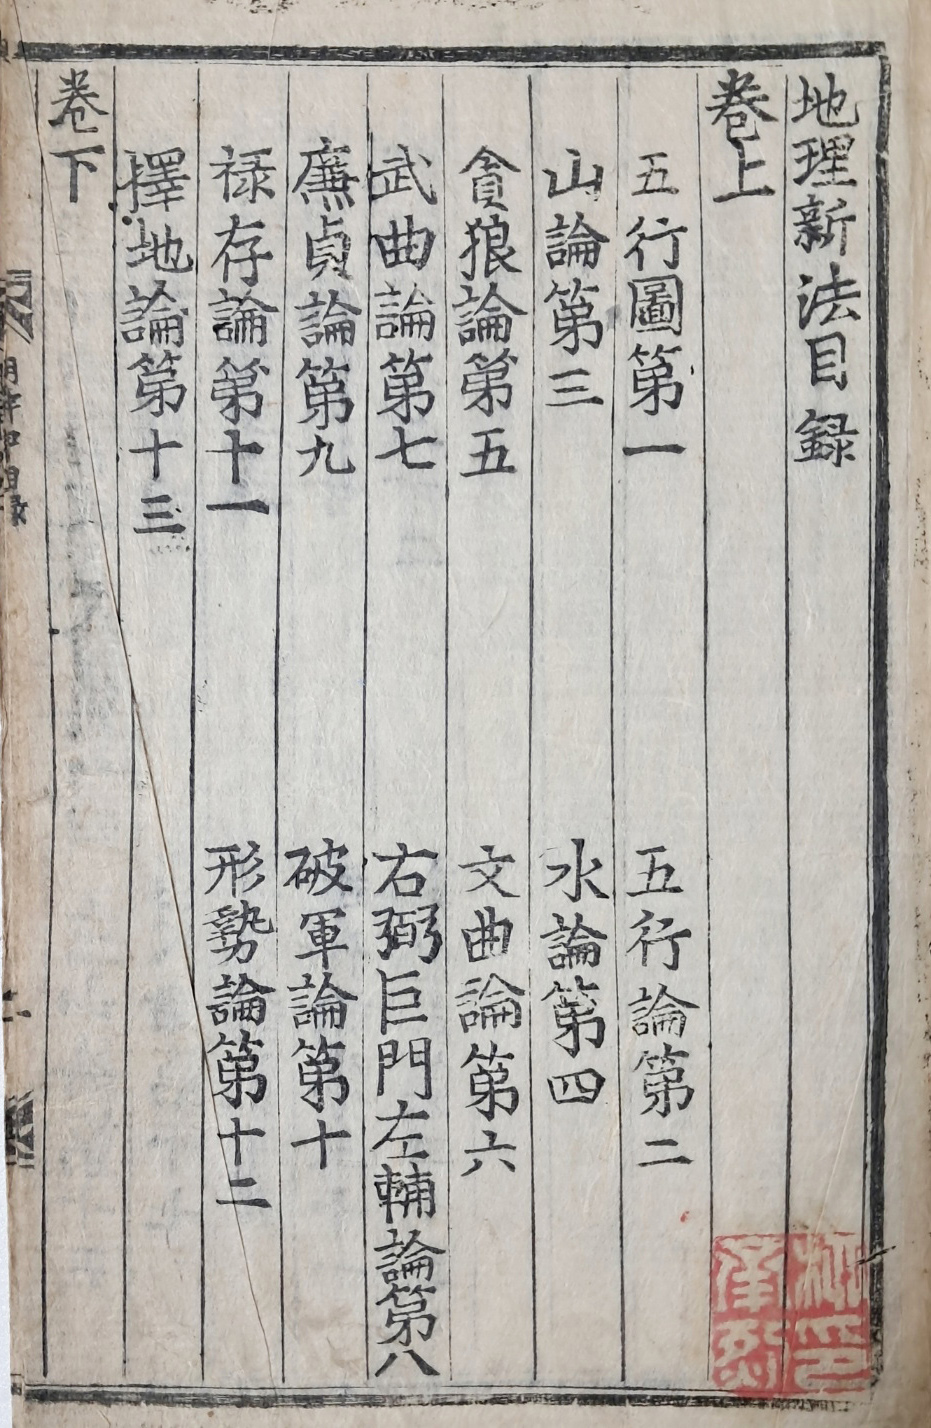 地理新法目録
卷上
五行圖第一　五行論第二
山論第三　水論第四
貪狼論第五　文曲論第六
武曲論第七　右弼巨門左輔論第八
廉貞論第九　破軍論第十
禄存論第十一　形勢論第十二
擇地論第十三
卷下